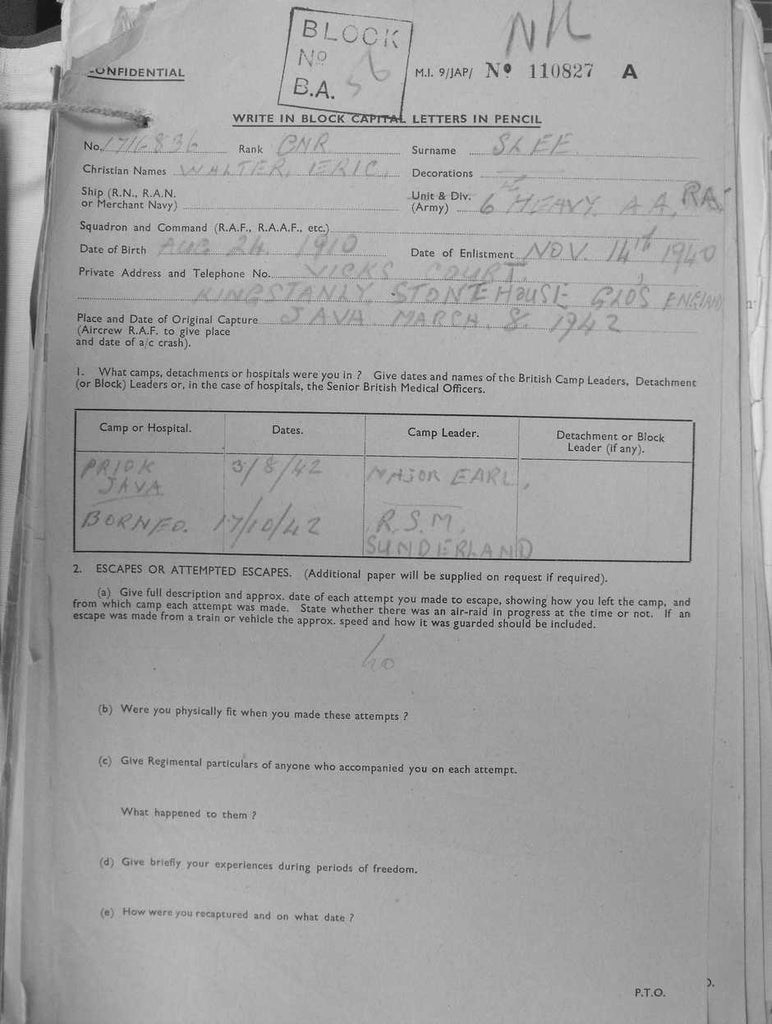 NIL
BLOCK
No 6
B.A. 5
CONFIDENTIAL
M.I. 9/JAP/ No 110827 A
WRITE IN BLOCK CAPITAL LETTERS IN PENCIL
No. 1716836 Rank GNR Surname SLEE
Christian Names WALTER, ERIC, Decorations
Ship (R.N., R.A.N. or Merchant Navy) Unit & Div. (Army) 6TH HEAVY A A, RA.
Squadron and Command (R.A.F., R.A.A.F., etc.)
Date of Birth AUG 24. 1910 Date of Enlistment NOV. 14th 1940
Private Address and Telephone No. VICKS COURT,
KINGSTANLY, STONEHOUSE GLOS ENGLAND
Place and Date of Original Capture JAVA MARCH. 8. 1942
(Aircrew R.A.F. to give place
and date of a/c crash).
1. What camps, detachments or hospitals were you in ? Give dates and names of the British Camp Leaders, Detachment
(or Block) Leaders or, in the case of hospitals, the Senior British Medical Officers.
Camp or Hospital. Dates. Camp Leader. Detachment or Block
Leader (if any).
PRIOK 3/8/42 MAJOR EARL,
JAVA
BORNEO. 17/10/42 R.S.M.
SUNDERLAND
2. ESCAPES OR ATTEMPTED ESCAPES. (Additional paper will be supplied on request if required).
(a) Give full description and approx. date of each attempt you made to escape, showing how you left the camp, and
from which camp each attempt was made. State whether there was an air-raid in progress at the time or not. If an
escape was made from a train or vehicle the approx. speed and how it was guarded should be included.
no
(b) Were you physically fit when you made these attempts ?
(c) Give Regimental particulars of anyone who accompanied you on each attempt.
What happened to them ?
(d) Give briefly your experiences during periods of freedom.
(e) How were you recaptured and on what date ?
P.T.O.